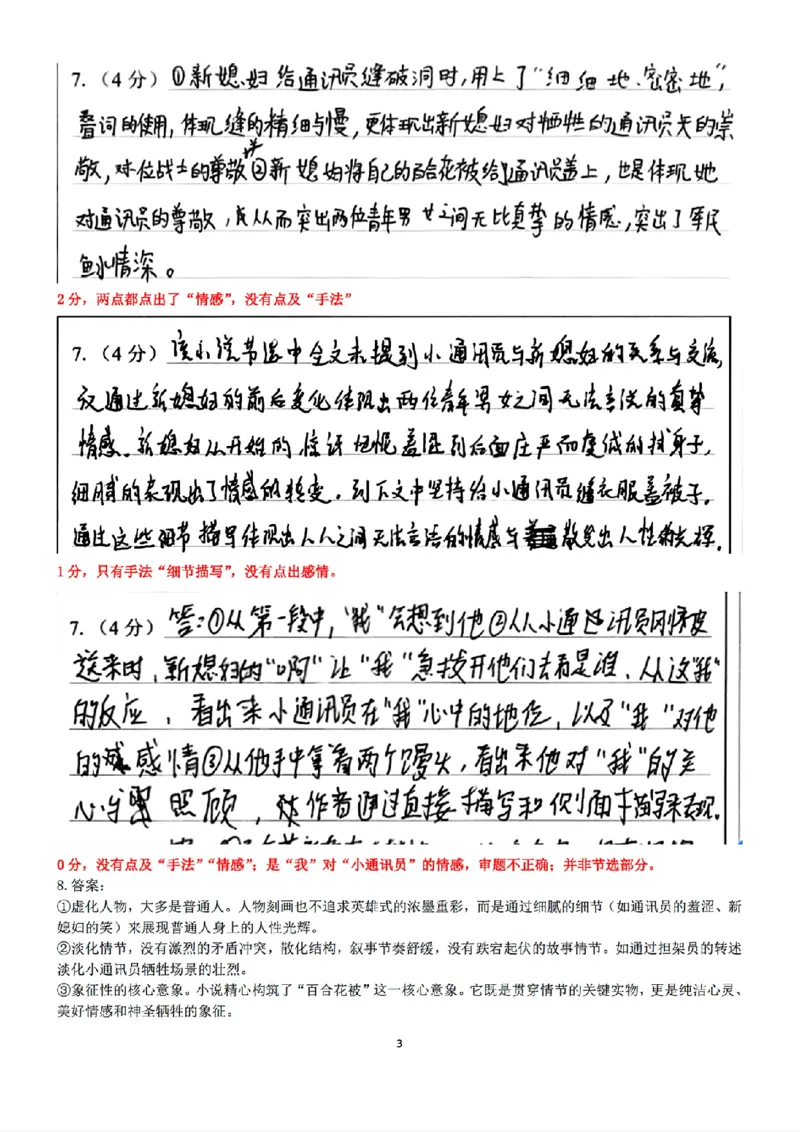 7.（4分）①新媳妇给通讯员缝破洞时,用上了"细细地、密密地",
叠词的使用,体现缝的精细与慢,更体现出新媳妇对牺牲的通讯员的崇
敬,对位战士的尊敬②新媳妇将自己的百合花被给通讯员盖上,也是体现她
对通讯员的尊敬,从而突出两位青年男女之间无比真挚的情感,突出了军民
鱼水情深。
2分，两点都点出了“情感”，没有点及“手法”
7.（4分）该小说节选中全文未提到小通讯员与新媳妇的关系与交流,
仅通过新媳妇的前后变化体现出两位青年男女之间无法言说的真挚
情感。新媳妇从开始的惊讶忸怩羞涩到后面庄严而虔诚的拭身子,
细腻的表现出了情感的转变。到下文中坚持给小通讯员缝衣服盖被子。
通过这些细节描写体现出人人之间无法言语的情感与散发出人性的光辉.
1分，只有手法“细节描写”，没有点出感情。
7.（4分）答:①从第一段中,"我"会想到他②从小通讯员刚被
送来时,新媳妇的"啊"让"我"急拨开他们去看是谁,从这"我"
的反应,看出来小通讯员在"我"心中的地位,以及"我"对他
的感情③从他手中拿着两个馒头,看出来他对"我"的关
心与照顾,作者通过直接描写和侧面描写来表现.
0分，没有点及“手法”“情感”；是“我”对“小通讯员”的情感，审题不正确；并非节选部分。
8.答案：
①虚化人物，大多是普通人。人物刻画也不追求英雄式的浓墨重彩，而是通过细腻的细节（如通讯员的羞涩、新
媳妇的笑）来展现普通人身上的人性光辉。
②淡化情节，没有激烈的矛盾冲突，散化结构，叙事节奏舒缓，没有跌宕起伏的故事情节。如通过担架员的转述
淡化小通讯员牺牲场景的壮烈。
③象征性的核心意象。小说精心构筑了“百合花被”这一核心意象。它既是贯穿情节的关键实物，更是纯洁心灵、
美好情感和神圣牺牲的象征。
3